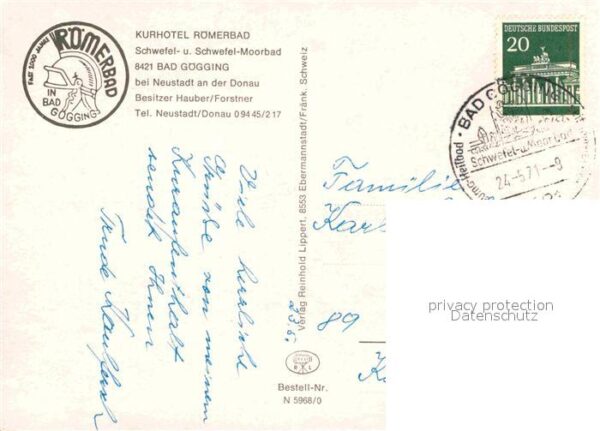 FAST 2000 JAHRE
RÖMERBAD
IN
BAD
GÖGGING
KURHOTEL RÖMERBAD
Schwefel- u. Schwefel-Moorbad
8421 BAD GÖGGING
bei Neustadt an der Donau
Besitzer Hauber/Forstner
Tel. Neustadt/Donau 09445/217
DEUTSCHE BUNDESPOST
20
BAD GÖGGING
Schwefel-u.Moorbad
24.-5.71.--9
Viele herzliche
Grüße von meinem
Kuraufenthalt
sendet Ihnen
Trude
23.5.
Verlag Reinhold Lippert, 8553 Ebermannstadt/Fränk. Schweiz
Familie
89
privacy protection
Datenschutz
R L
Bestell-Nr.
N 5968/0